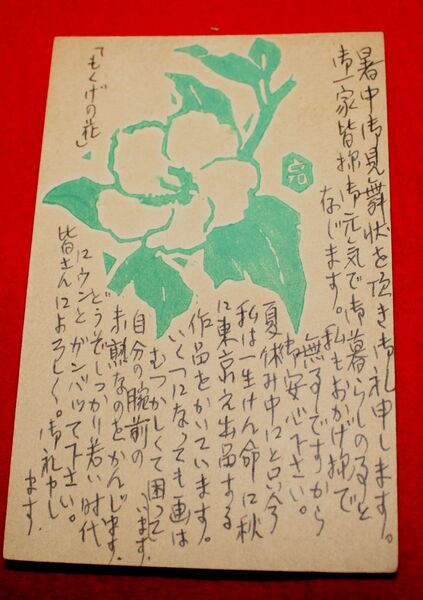 暑中御見舞状を頂き御礼申します。
御一家皆様御元気で御暮らしのるると
なじます。私もおかげ様で
無るですから
御安心下さい。
夏休み中にと思い今
私は一生けん命に秋
に東京え出品する
作品をかいています。
いくつになっても画は
むつかしくて困って
います。
自分の腕前の
未熟なのをかんじます。
どうぞしっかり若い時代
にウンとガンバッて下さい。
皆さんによろしく。御礼申し
ます
「もくげの花」